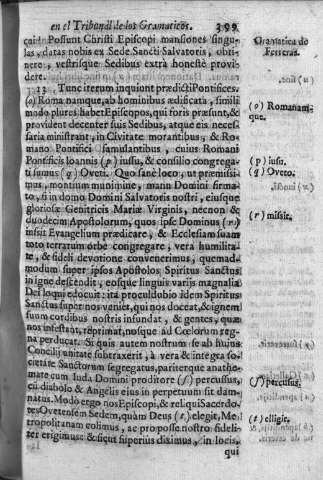 en el Tribunal de los Gramaticos. 399
cui: Possunt Christi Episcopi mansiones singu-
las, datas nobis ex Sede Sancti Salvatoris, obti-
nere, vestrisque Sedibus extra honestè provi-
dere.
13 Tunc iterum inquiunt prædicti Pontifices.
(o) Roma namque, ab hominibus ædificata, simili
modo plures habet Episcopos, qui foris præsunt, &
provident decenter suis Sedibus, atque eis neces-
saria ministrant, in Civitate morantibus, & Ro-
mano Pontifici famulantibus, cuius Romani
Pontificis Ioannis (p) iussu, & consilio congrega-
ti sumus (q) Oveti. Quo sanè loco, ut præmissi-
mus, montium munimine, manu Domini firma-
to, si in domo Domini Salvatoris nostri, eiusque
gloriosæ Genitricis Mariæ Virginis, necnon &
duodecim Apostolorum, quos ipse Dominus (r)
iussit Evangelium prædicare, & Ecclesiam suam
toto terrarum orbe congregare, vera humilita-
te, & fideli devotione convenerimus, quemad-
modum super ipsos Apostolos Spiritus Sanctus
in igne descendit, eosque linguis varijs magnalia
Dei loqui edocuit: ita proculdubio idem Spiritus
Sanctus super nos veniet, qui nos doceat, & ignem
suum cordibus nostris infundat, & gentes, quæ
nos infestant, reprimat, nosque ad Cœlorum reg-
na perducat. Si quis autem nostrum se ab huius
Concilij unitate subtraxerit, à vera & integra so-
cietate Sanctorum segregatus, pariterque anathe-
mate cum Iuda Domini proditore (s) percussus,
cũ diabolo & Angelis eius in perpetuum sit dam-
natus. Modo ergo nos Episcopi, & reliqui Sacerdo-
tes Ovetensem Sedem, quàm Deus (t) elegit, Me-
tropolitanam colimus, ac pro posse nostro fideli-
ter erigimus: & sicut superius diximus, in locis,
qui
Gramatica de
Ferreras.
(o) Romanam-
que.
(p) iusu.
(q) Oveto.
(r) missit.
(s) percusus.
(t) elligit.